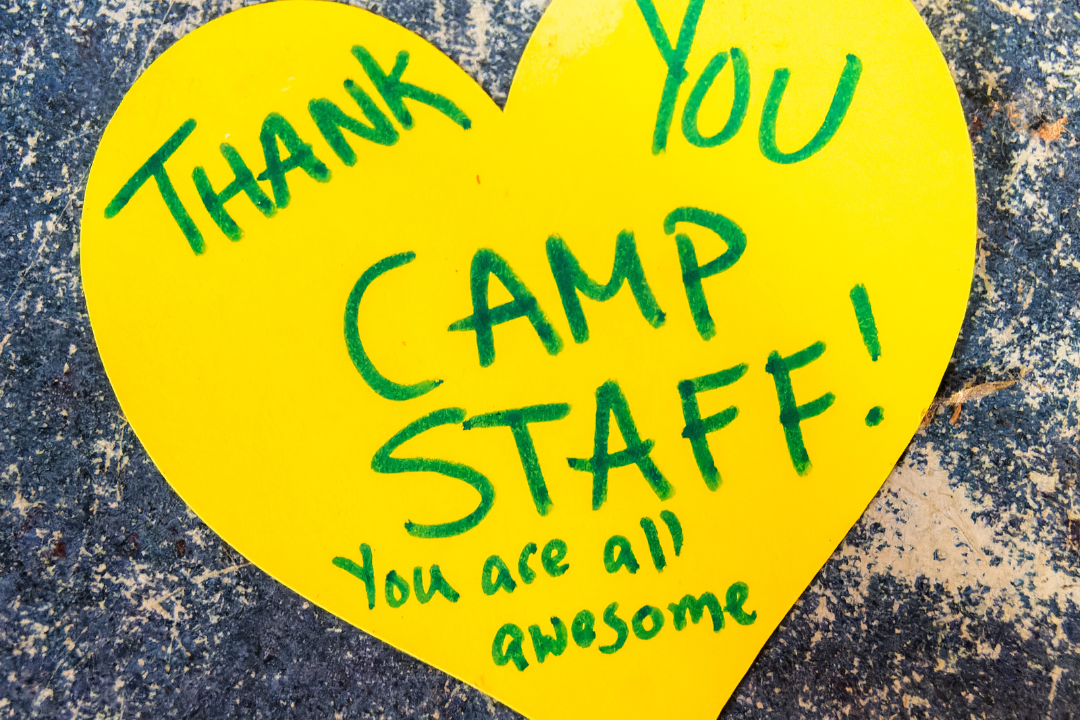 THANK YOU
CAMP
STAFF!
You are all
awesome